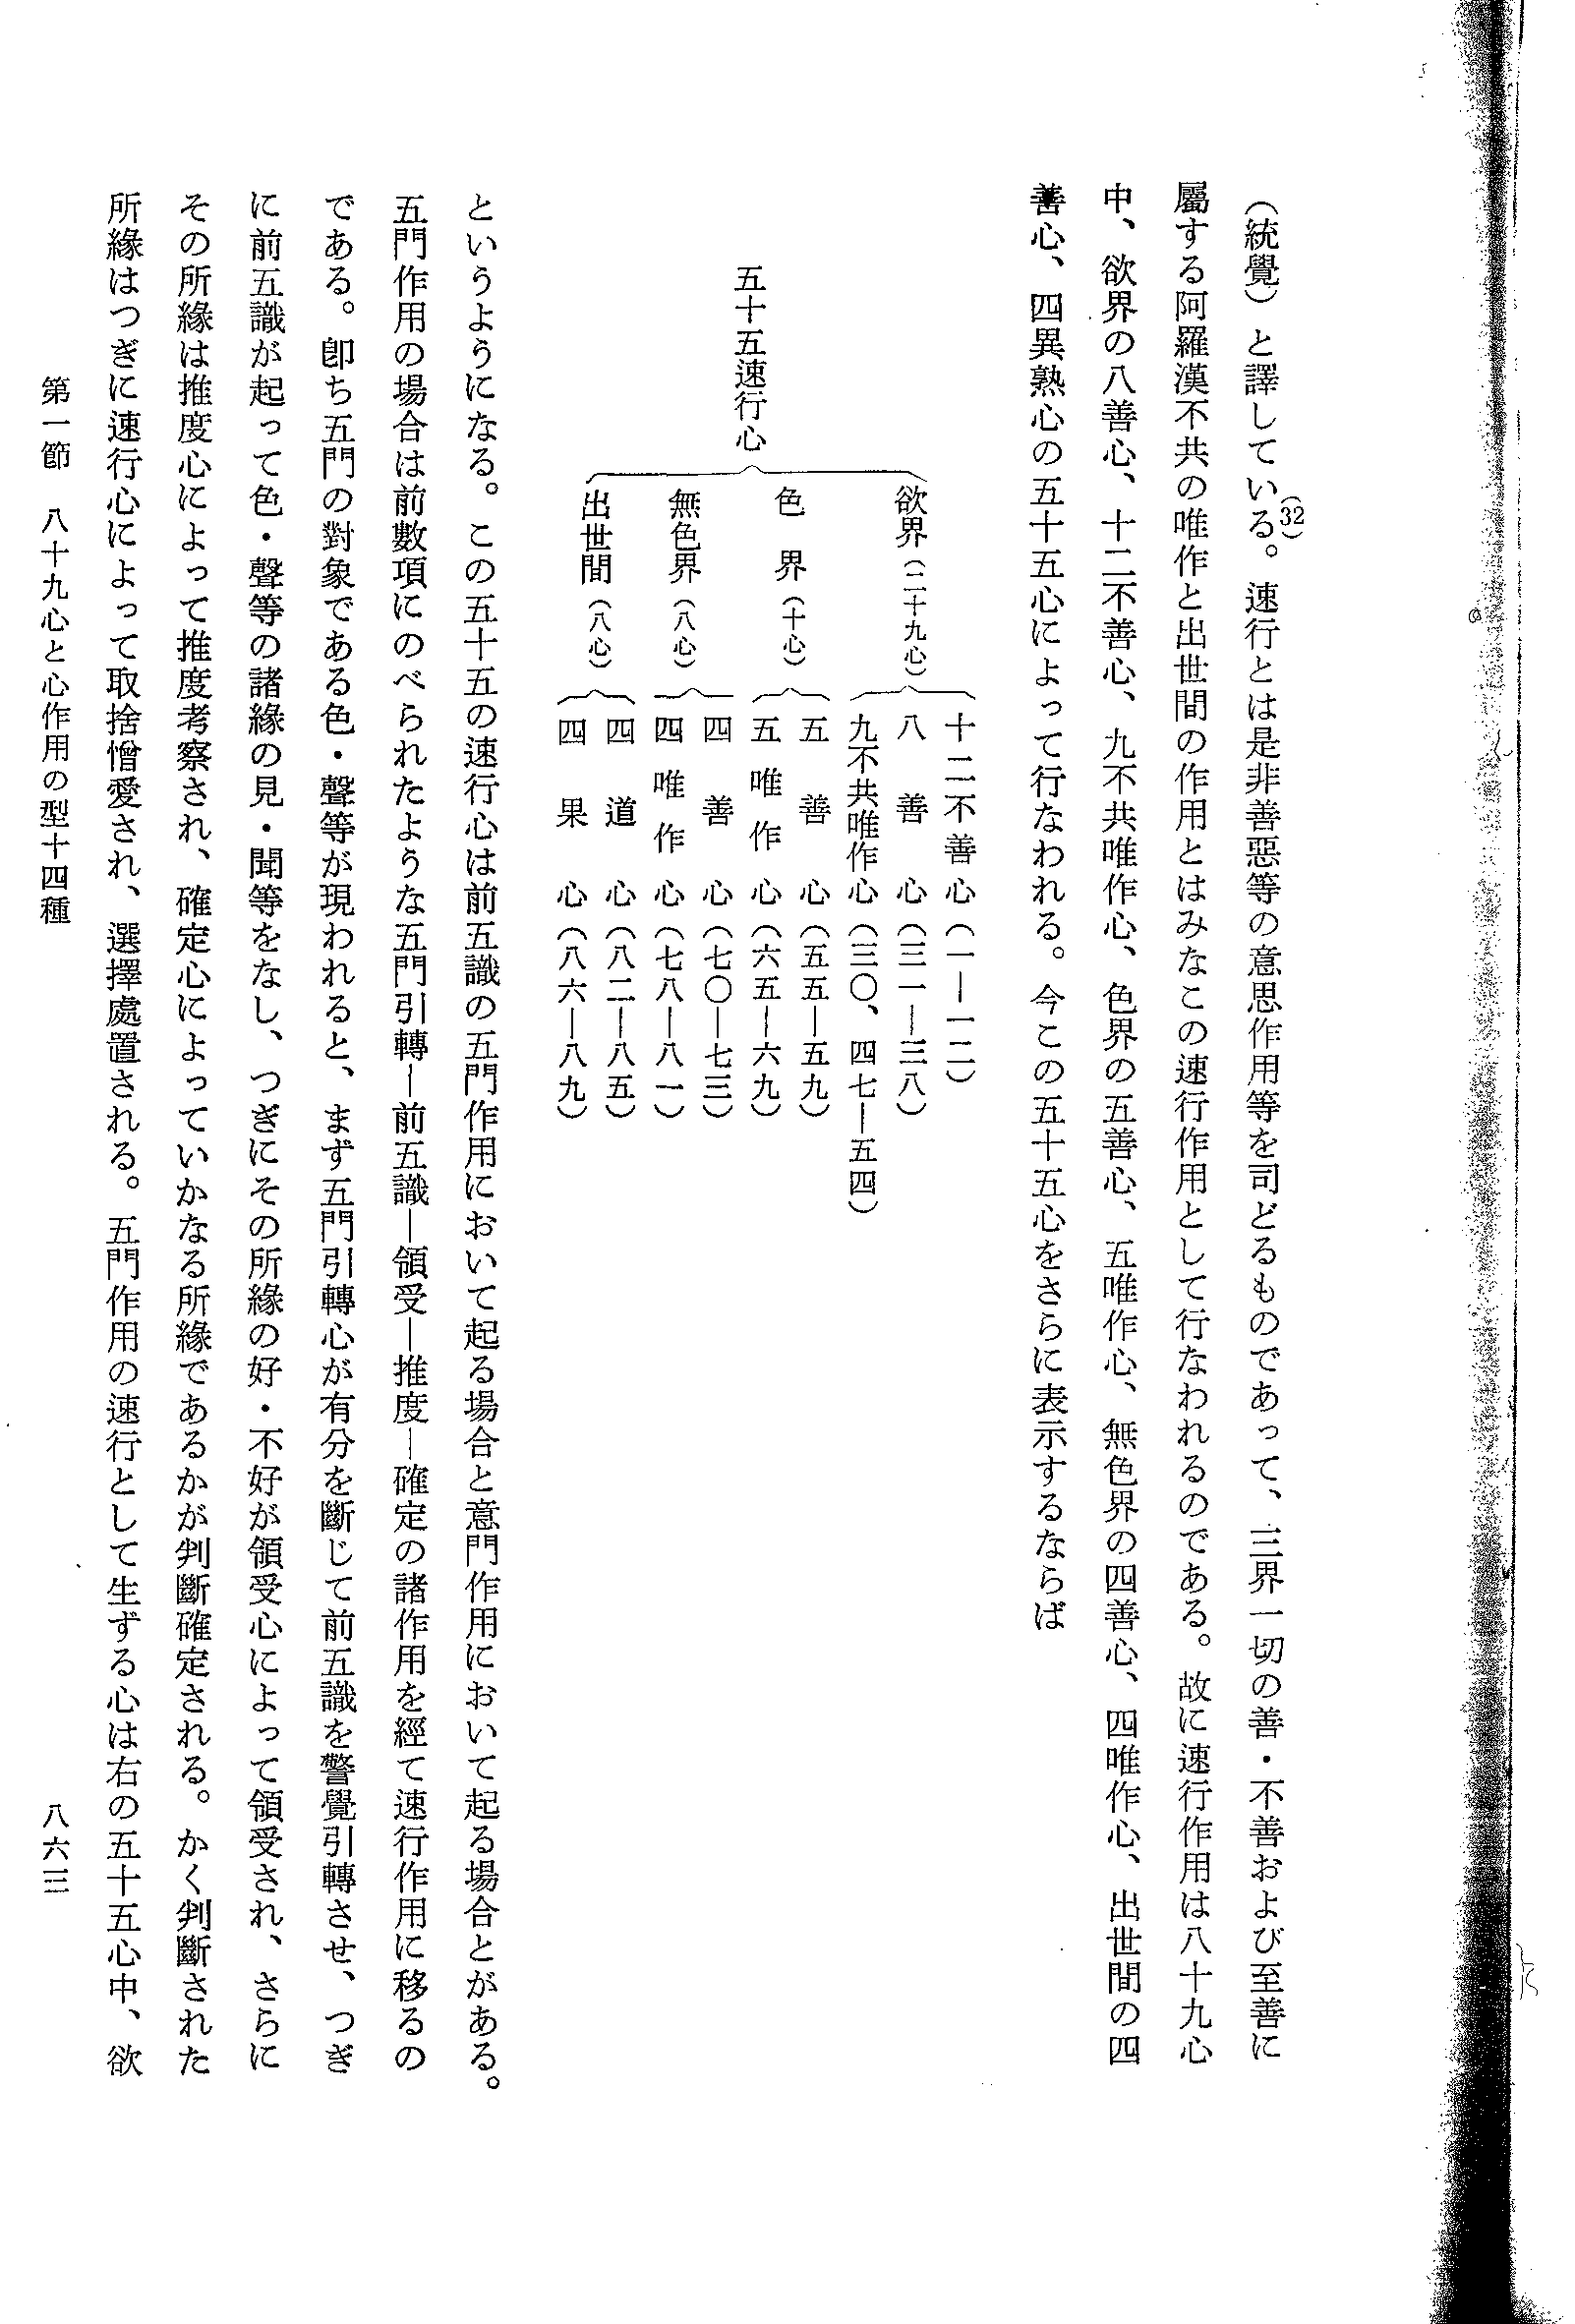 （統覺）と譯している。(32)速行とは是非善惡等の意思作用等を司どるものであって、三界一切の善・不善および至善に
屬する阿羅漢不共の唯作と出世間の作用とはみなこの速行作用として行なわれるのである。故に速行作用は八十九心
中、欲界の八善心、十二不善心、九不共唯作心、色界の五善心、五唯作心、無色界の四善心、四唯作心、出世間の四
善心、四異熟心の五十五心によって行なわれる。今この五十五心をさらに表示するならば
五十五速行心
欲界（二十九心）
十二不善心（一―一二）
八善心（三一―三八）
九不共唯作心（三〇、四七―五四）
色界（十心）
五善心（五五―五九）
五唯作心（六五―六九）
無色界（八心）
四善心（七〇―七三）
四唯作心（七八―八一）
出世間（八心）
四道心（八二―八五）
四果心（八六―八九）
というようになる。この五十五の速行心は前五識の五門作用において起る場合と意門作用において起る場合とがある。
五門作用の場合は前數項にのべられたような五門引轉―前五識―領受―推度―確定の諸作用を經て速行作用に移るの
である。卽ち五門の對象である色・聲等が現われると、まず五門引轉心が有分を斷じて前五識を警覺引轉させ、つぎ
に前五識が起って色・聲等の諸緣の見・聞等をなし、つぎにその所緣の好・不好が領受心によって領受され、さらに
その所緣は推度心によって推度考察され、確定心によっていかなる所緣であるかが判斷確定される。かく判斷された
所緣はつぎに速行心によって取捨憎愛され、選擇處置される。五門作用の速行として生ずる心は右の五十五心中、欲
第一節　八十九心と心作用の型十四種
八六三